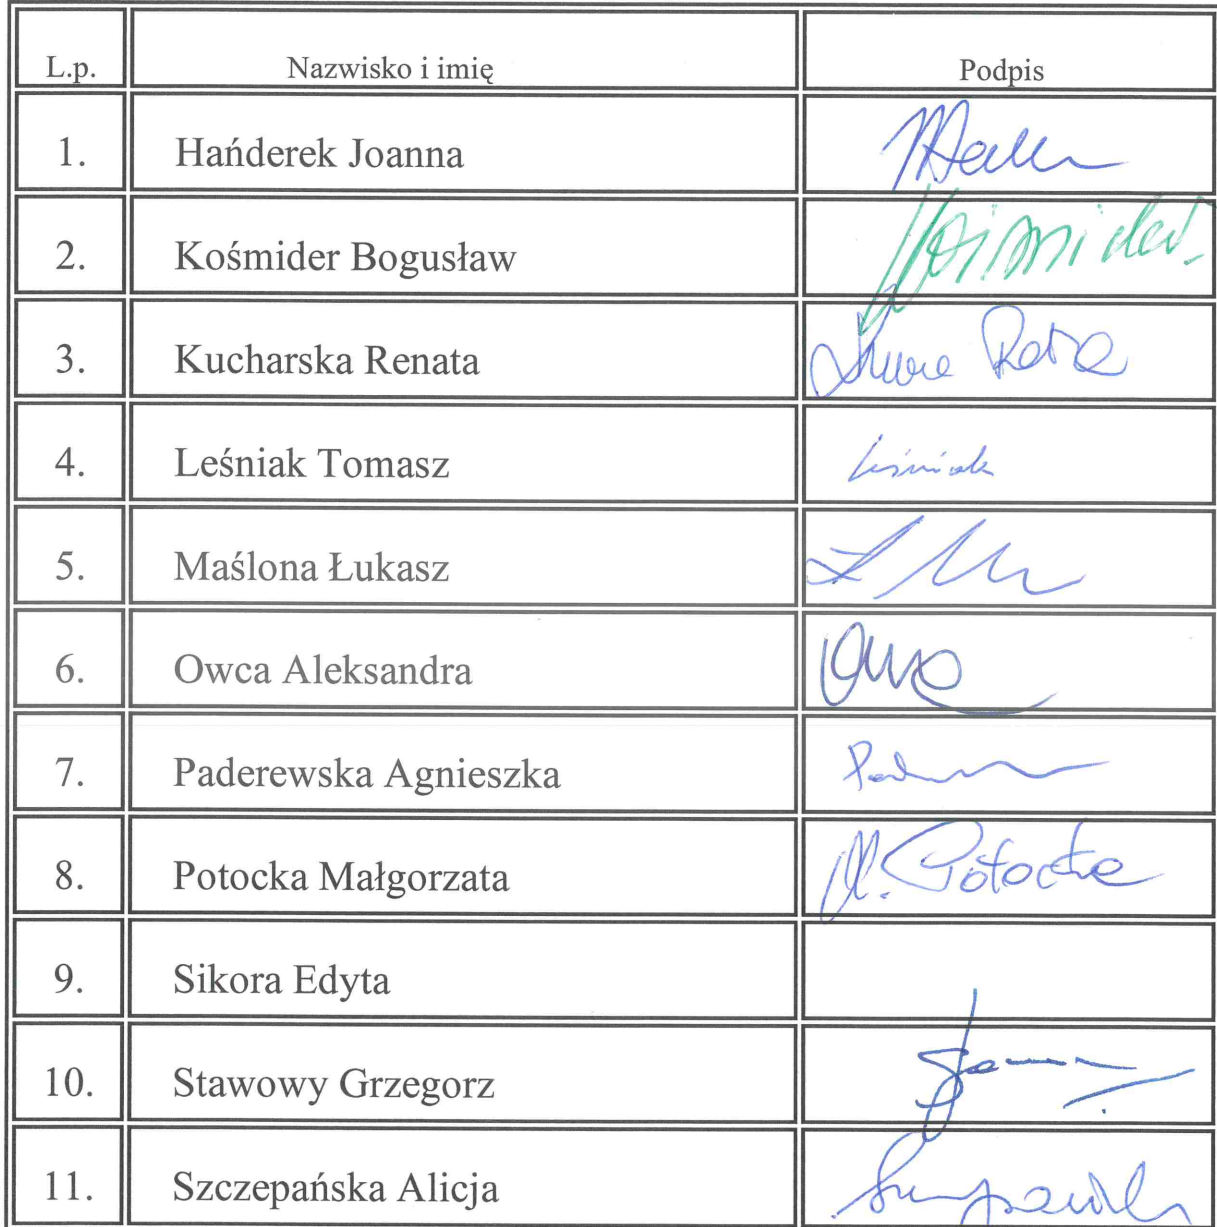 L.p. Nazwisko i imię Podpis
1. Hańderek Joanna
2. Kośmider Bogusław Kośmider
3. Kucharska Renata
4. Leśniak Tomasz Leśniak
5. Maślona Łukasz
6. Owca Aleksandra
7. Paderewska Agnieszka
8. Potocka Małgorzata M. Potocka
9. Sikora Edyta
10. Stawowy Grzegorz
11. Szczepańska Alicja